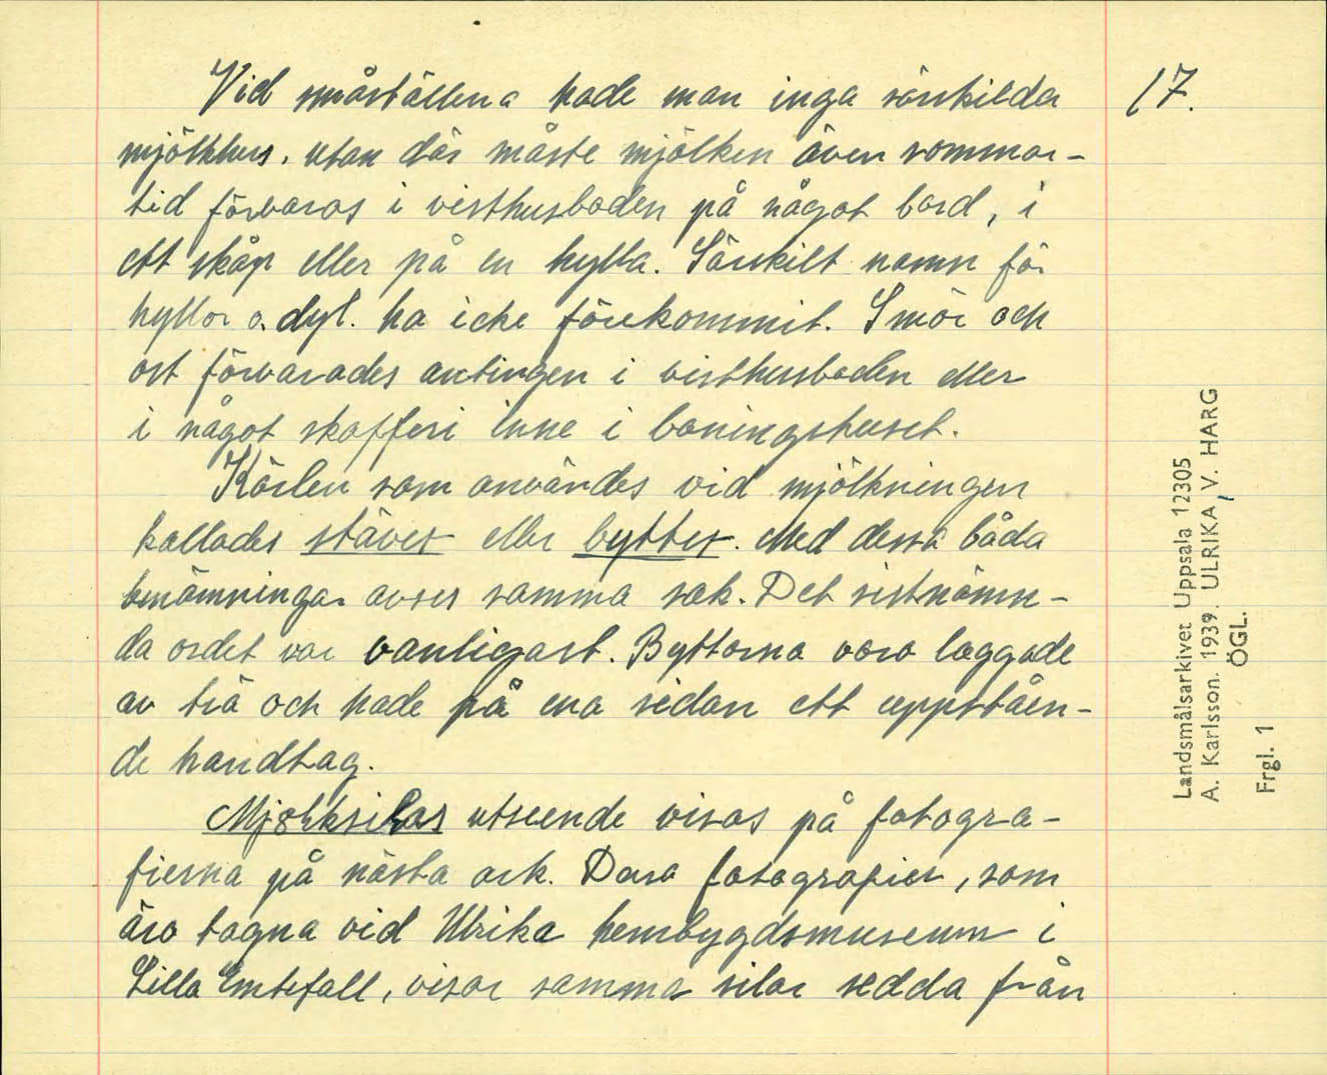 17.
Vid småställena hade man inga särskilda
mjölkhus, utan där måste mjölken även sommar-
tid förvaras i visthusboden på något bord, i
ett skåp eller på en hylla. Särskilt namn för
hyllor o. dyl. ha icke förekommit. Smör och
ost förvarades antingen i visthusboden eller
i något skafferi inne i boningshuset.
Kärlen som användes vid mjölkningen
kallades stäver eller byttor. Med dessa båda
benämningar avses samma sak. Det sistnämn-
da ordet var vanligast. Byttorna voro laggade
av trä och hade på ena sidan ett uppståen-
de handtag.
Mjölksilars utseende visas på fotogra-
fierna på nästa ark. Dessa fotografier, som
äro tagna vid Ulrika hembygdsmuseum i
Lilla Emtefall, visar samma silar sedda från
Landsmålsarkivet Uppsala 12305
A. Karlsson. 1939. ULRIKA, V. HARG
ÖGL.
Frgl. 1